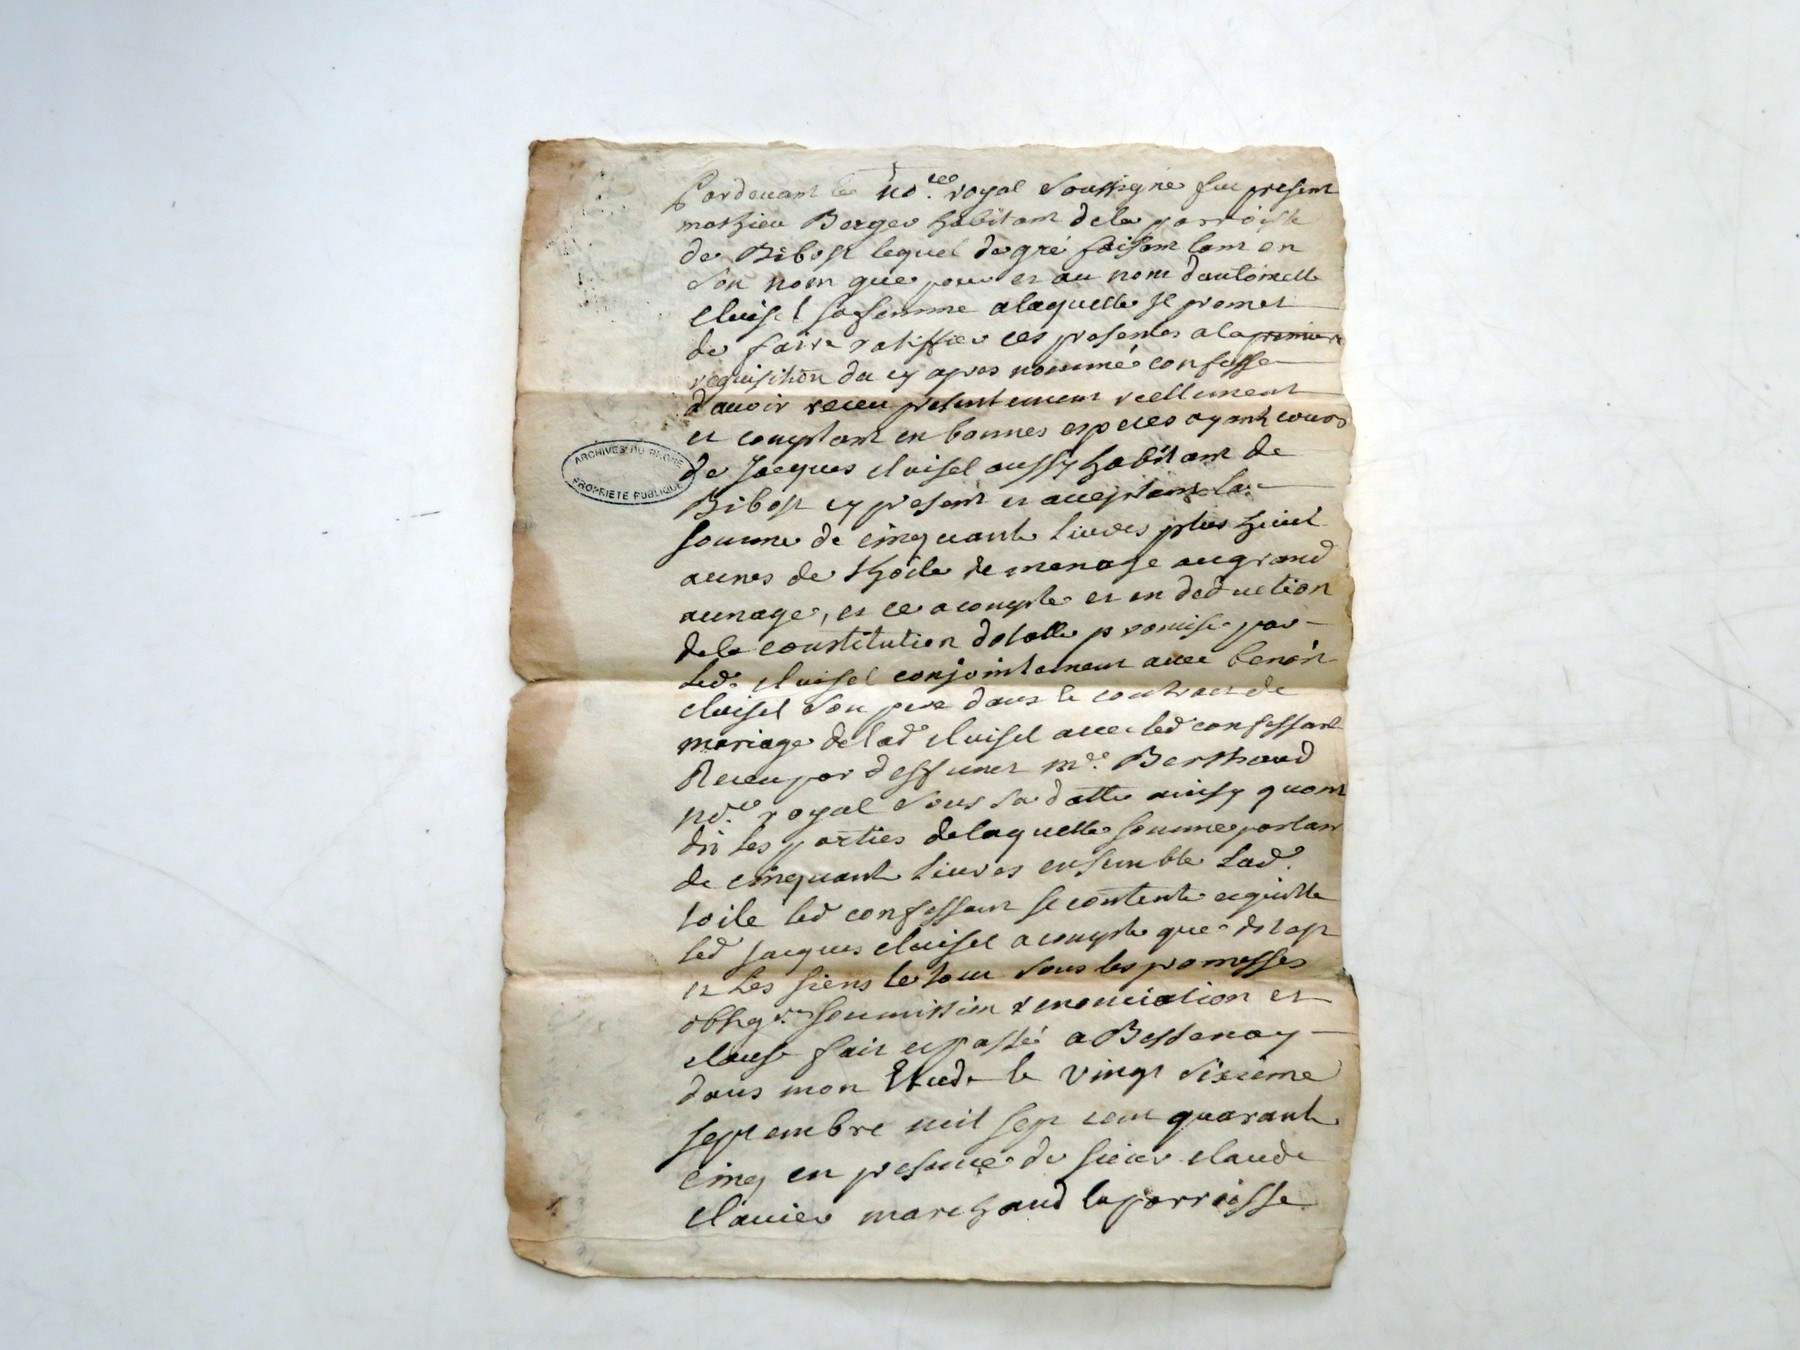 Pardevant le no.re royal soussigné fut present
mathieu Berger habitant de la parroisse
de Bibost lequel de gré faisant tant en
son nom que pour et au nom dantoinette
cluisel sa femme a laquelle il promet
de faire ratiffier ces presentes a la premiere
requisition du cy apres nommé confesse
d'avoir receu presentement reellement
et comptant en bonnes especes ayant cours
de Jacques cluisel aussy habitant de
Bibost cy present et acceptant la
somme de cinquante livres plus huict
aunes de thoile de menage au grand
aunage, et ce a compte et en deduction
de la constitution dotalle promise par
led. cluisel conjointement avec benoit
cluisel son pere dans le contract de
mariage de lad cluisel avec led confessant
Receu par deffunct me. Berthaud
no.re royal sous sa datte ainsy quont
dit les parties de laquelle somme partant
de cinquante livres ensemble lad.
toile led confessant se contente et quitte
led Jacques cluisel a compte que dessus
et les siens le tout sous les promesses
oblig.ons soumission renonciation et
clause fait et passé a Bessenay
dans mon Etude le vingt sixieme
septembre mil sept cent quarante
cinq en presence de sieur claude
clavier marchand la parroisse
ARCHIVES DU RHONE
PROPRIETE PUBLIQUE